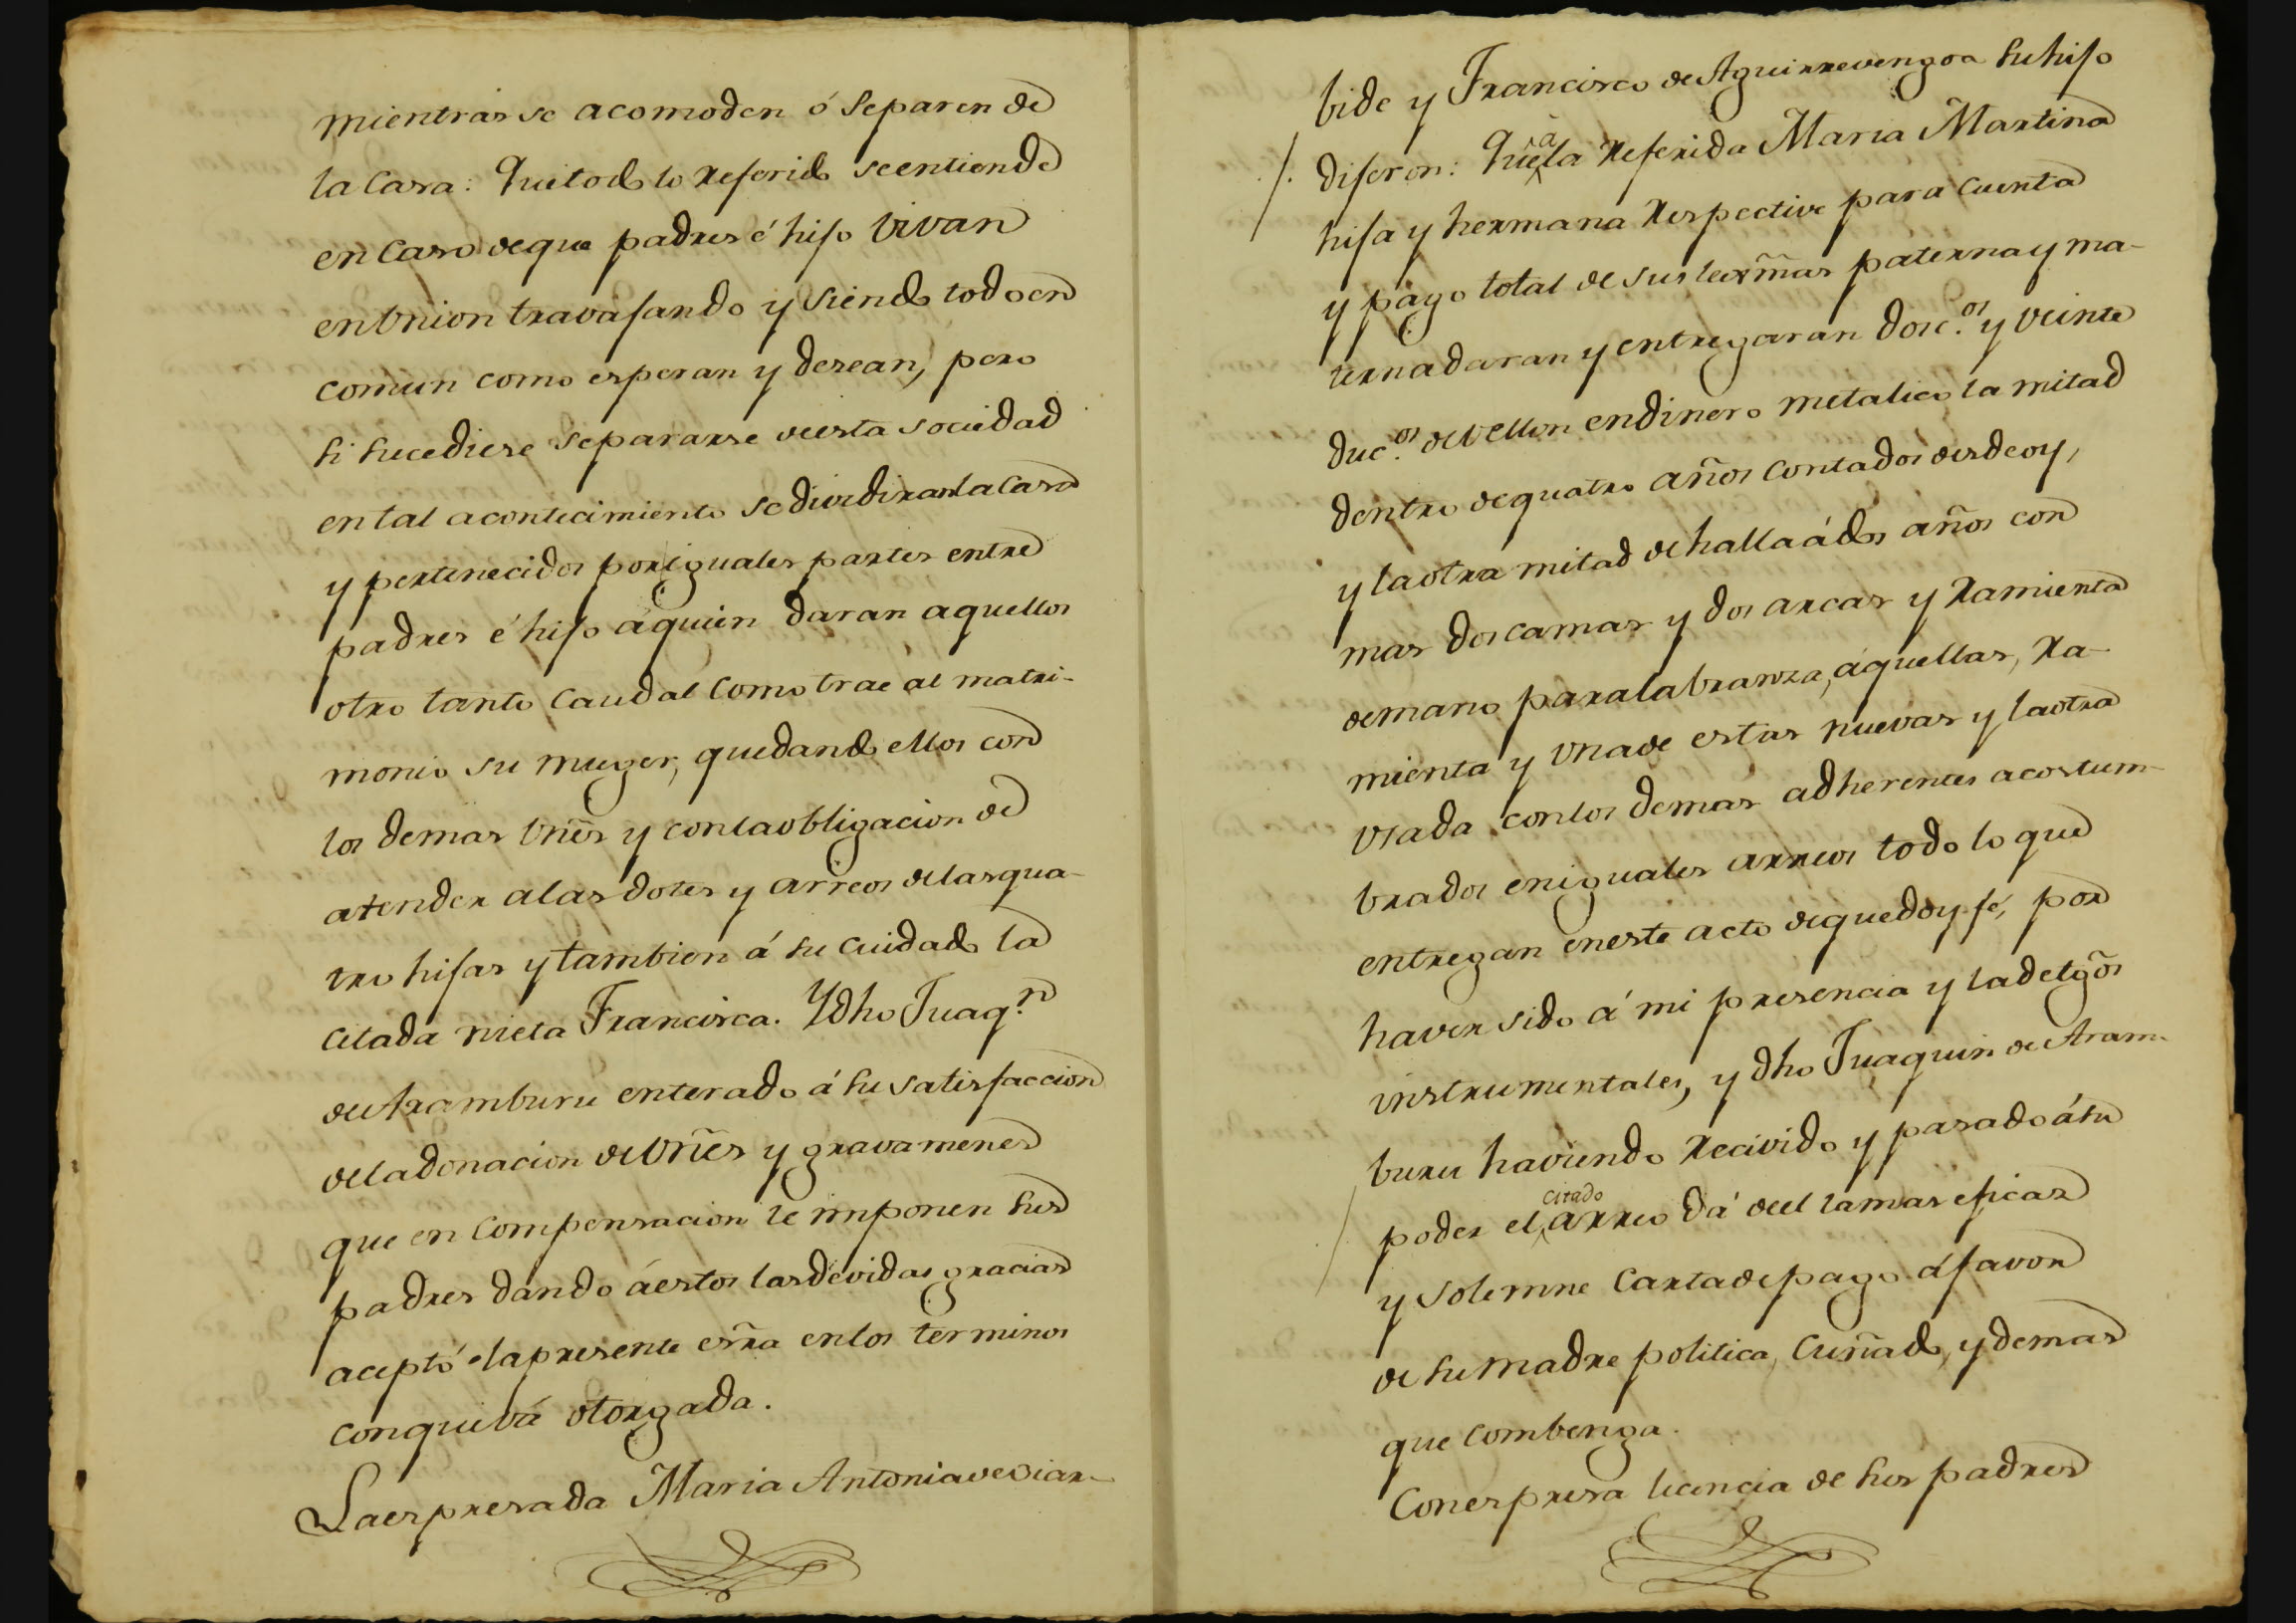 mientras se acomoden ó Separen de
la Casa: Que todo lo referido se entiende
en Caso de que padres é hijo vivan
en Union travajando y siendo todo en
comun como esperan y desean, pero
si sucediese separarse de esta sociedad
en tal acontecimiento se dividiran la Casa
y pertenecidos por iguales partes entre
padres é hijo á quien daran aquellos
otro tanto Caudal Como trae al matri-
monio su muger, quedando ellos con
los demas vñes y con la obligacion de
atender a las dotes y arreos de las qua-
tro hijas y tambien á su cuidado la
citada nieta Francisca. Y dho Juaqn
de Aramburu enterado á su satisfaccion
de la donacion de vñes y gravamenes
que en Compensacion le imponen sus
padres dando á estos las devidas gracias
aceptó la presente esrra en los terminos
con que vá otorgada.
La espresada Maria Antonia de Oiar-
bide y Francisco de Aguirrevengoa su hijo
dijeron: Que á la referida Maria Martina
hija y hermana respective para Cuenta
y pago total de sus lexmas paterna y ma-
terna daran y entregaran doscos y veinte
ducos de vellon en dinero metalico la mitad
dentro de quatro años contados desde oy,
y la otra mitad de halla á dos años con
mas dos camas y dos arcas y ramienta
de mano para labranza, aquellas, ra-
mienta y una de estas nuevas y la otra
usada con los demas adherentes acostum-
brados en iguales arreos todo lo que
entregan en este acto de que doy fé, por
haver sido á mi presencia y la de tgos
instrumentales, y dho Juaquin de Aram-
buru haviendo recivido y pasado á su
poder el citado arreo dá de el la mas eficaz
y solemne Carta de pago á favor
de su Madre politica, Cuñado, y demas
que Combenga.
Con espresa licencia de sus padres